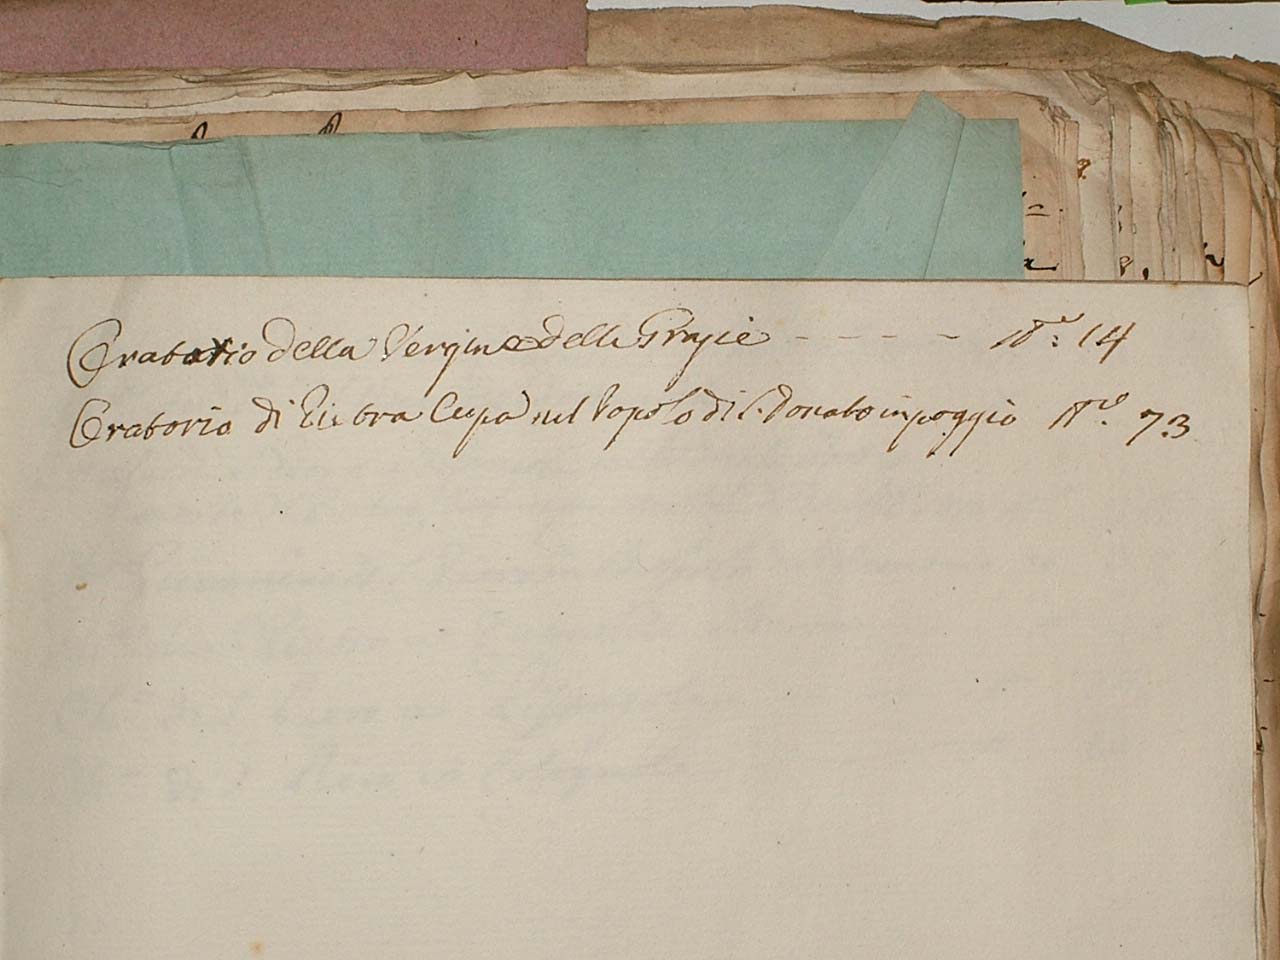 Oratorio della Vergine delle Grazie - - - - N.º 14
Oratorio di Pietra Cupa nel Popolo di S. Donato in poggio N.º 73